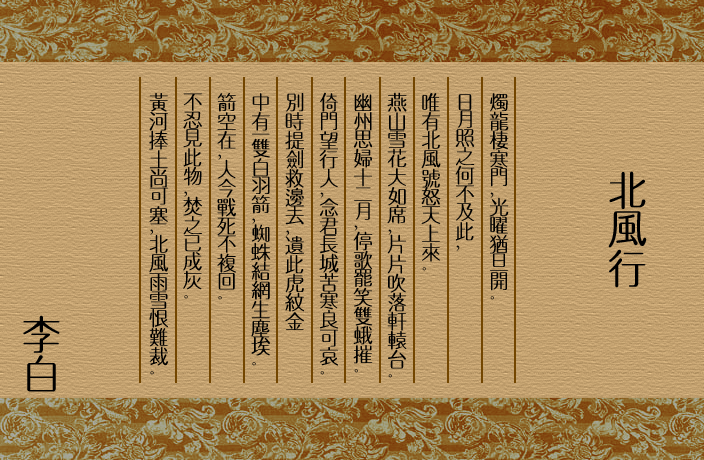 北風行
燭龍棲寒門，光曜猶旦開。
日月照之何不及此，
唯有北風號怒天上來。
燕山雪花大如席，片片吹落軒轅台。
幽州思婦十二月，停歌罷笑雙蛾摧。
倚門望行人，念君長城苦寒良可哀。
別時提劍救邊去，遺此虎紋金
中有一雙白羽箭，蜘蛛結網生塵埃。
箭空在，人今戰死不複回。
不忍見此物，焚之已成灰。
黃河捧土尚可塞，北風雨雪恨難裁。
李白